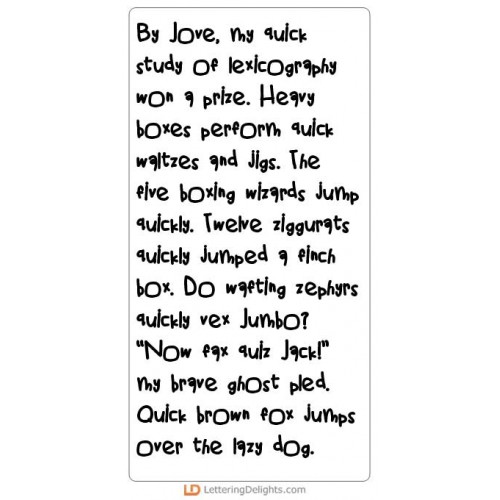 By Jove, my quick
study of lexicography
won a prize. Heavy
boxes perform quick
waltzes and jigs. The
five boxing wizards jump
quickly. Twelve ziggurats
quickly jumped a finch
box. Do wafting zephyrs
quickly vex Jumbo?
"Now fax quiz Jack!"
my brave ghost pled.
Quick brown fox jumps
over the lazy dog.
LD LetteringDelights.com